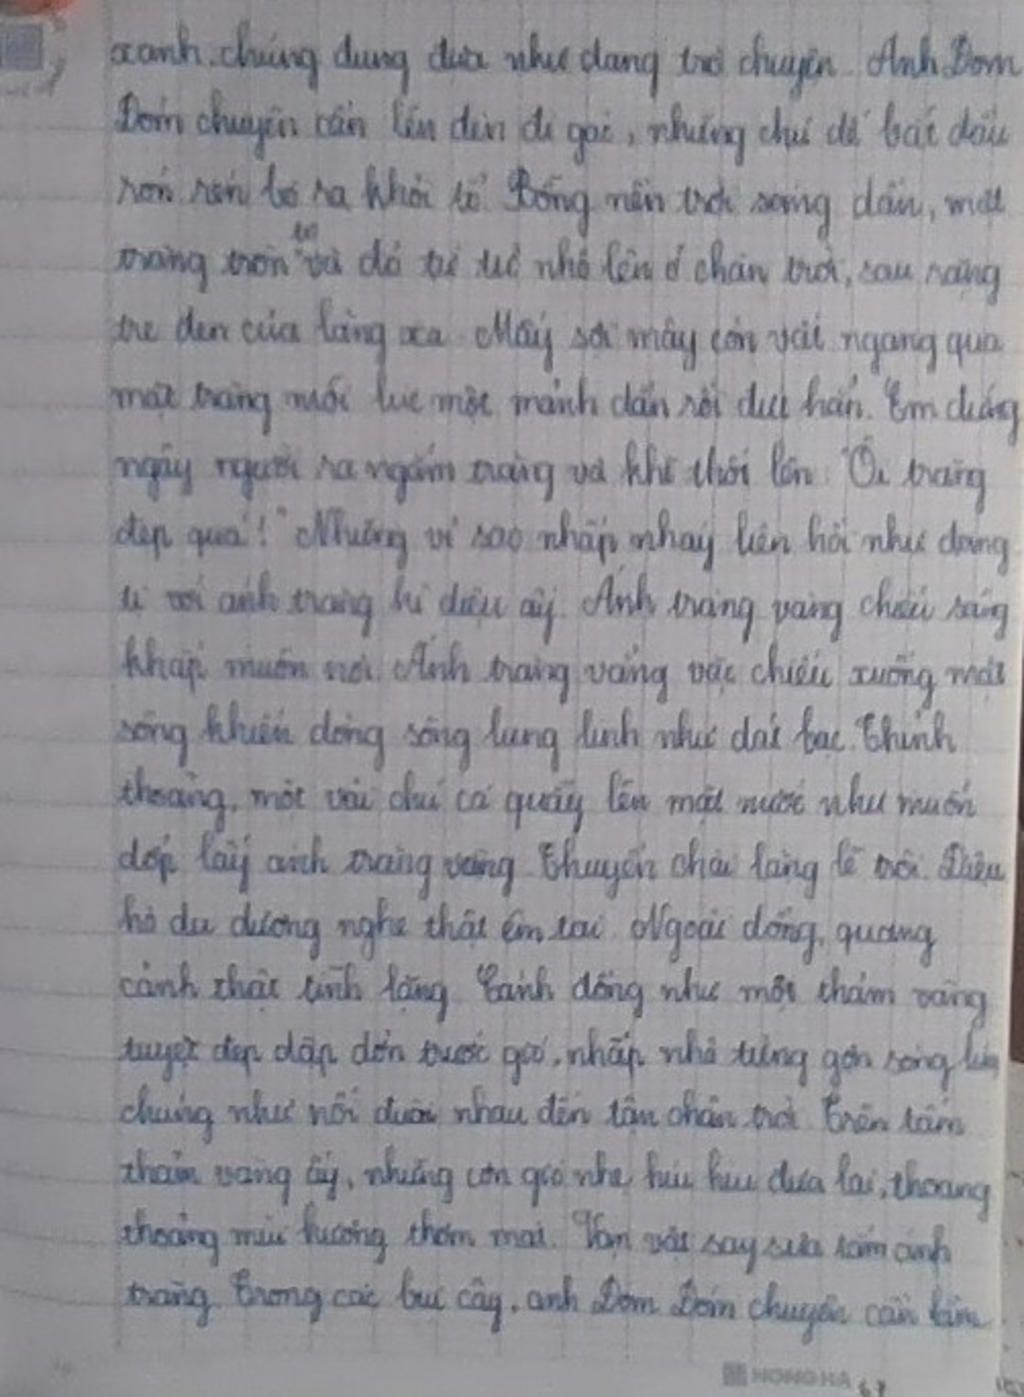 xanh, chúng đung đưa như đang trò chuyện. Anh Đom
Đóm chuyên cần lên đèn đi gác, những chú dế bắt đầu
rón rén bò ra khỏi tổ. Bỗng nền trời sáng dần, mặt
trăng tròn to và đỏ từ từ nhô lên ở chân trời, sau rặng
tre đen của làng xa. Mấy sợi mây còn vắt ngang qua
mặt trăng mỗi lúc một mảnh dần rồi đứt hẳn. Em đứng
ngây người ra ngắm trăng và khẽ thốt lên: "Ôi trăng
đẹp quá!" Những vì sao nhấp nháy liên hồi như đang
tị với ánh trăng kì diệu ấy. Ánh trăng vàng chiếu sáng
khắp muôn nơi. Ánh trăng vằng vặc chiếu xuống mặt
sông khiến dòng sông lung linh như dát bạc. Thỉnh
thoảng, một vài chú cá quẫy lên mặt nước như muốn
đớp lấy ánh trăng vàng. Thuyền chài lặng lẽ trôi. Điệu
hò du dương nghe thật êm tai. Ngoài đồng, quang
cảnh thật tĩnh lặng. Cánh đồng như một thảm vàng
tuyệt đẹp dập dờn trước gió, nhấp nhô từng gợn sóng lúa
chúng như nối đuôi nhau đến tận chân trời. Trên tấm
thảm vàng ấy, những cơn gió nhẹ hiu hiu đưa lại, thoang
thoảng mùi hương thơm mát. Vạn vật say sưa tắm ánh
trăng. Trong các bụi cây, anh Đom Đóm chuyên cần làm
HONG HA